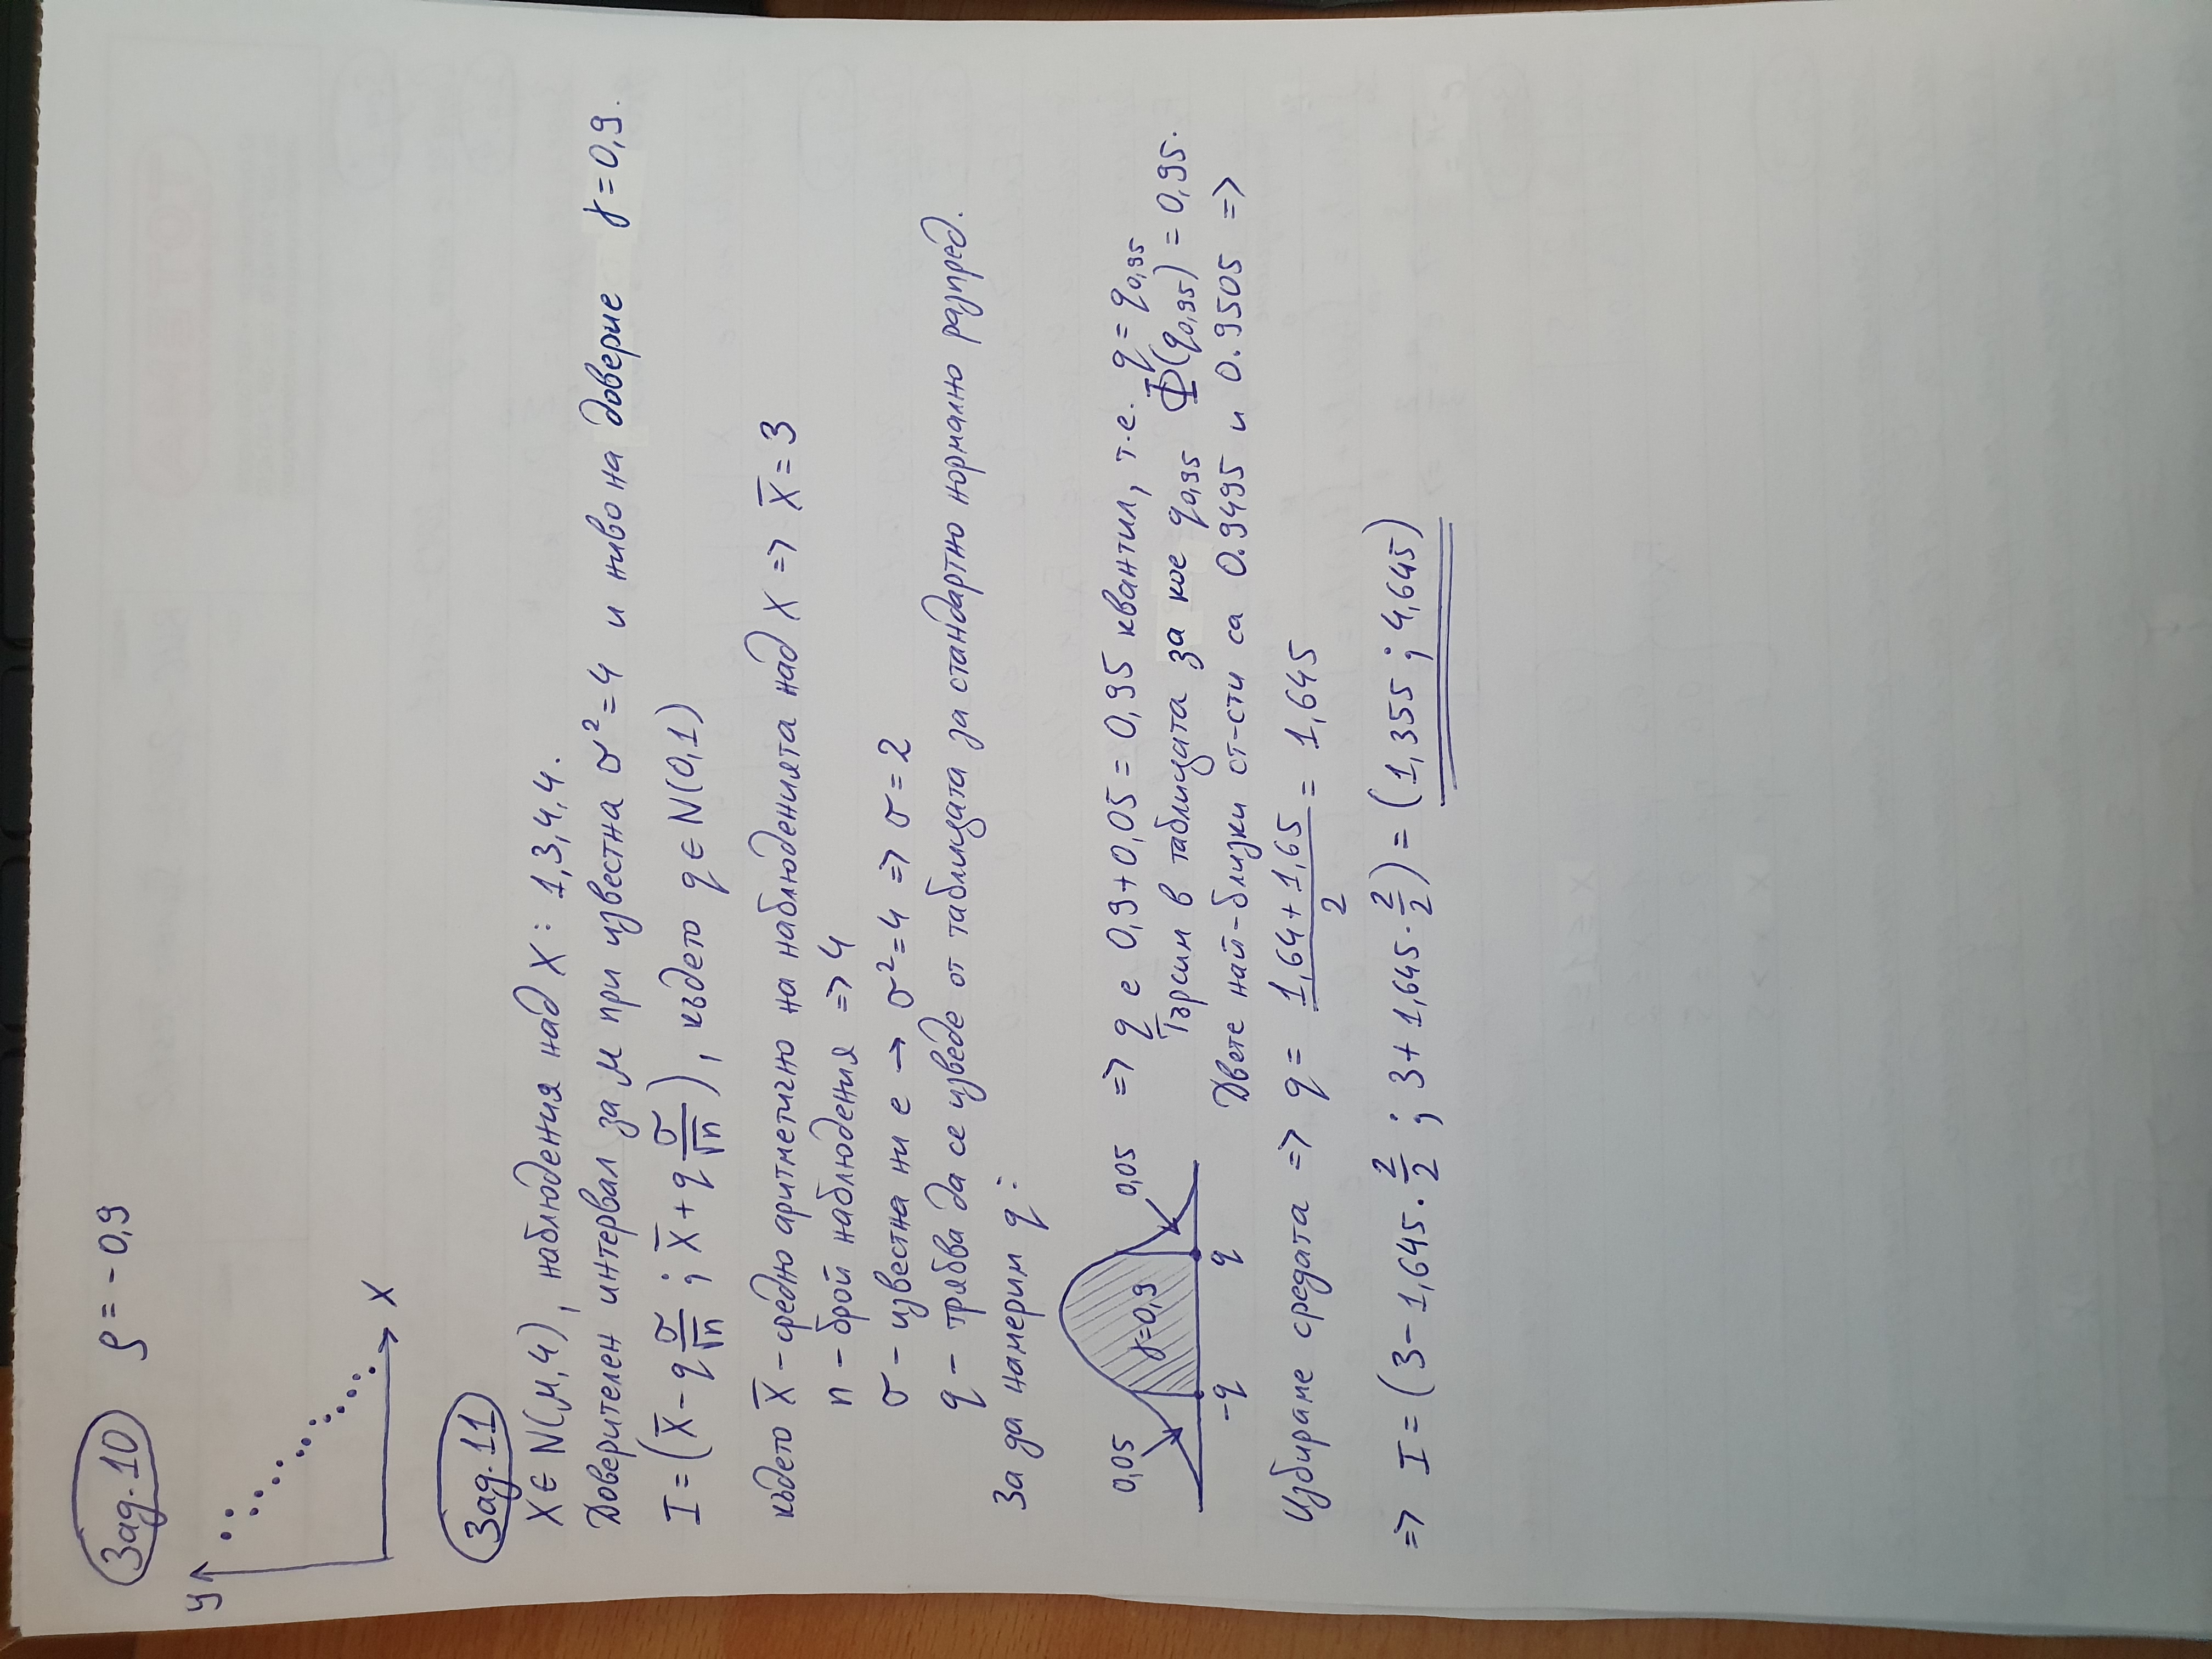 Зад. 10 ρ = - 0,9
y
x
Зад. 11
X ∈ N(μ, 4), наблюдения над X: 1, 3, 4, 4.
Доверителен интервал за μ при известна σ² = 4 и ниво на доверие γ = 0,9.
I = (X̄ - q σ/√n ; X̄ + q σ/√n), където q ∈ N(0,1)
където X̄ - средно аритметично на наблюденията над X => X̄ = 3
n - брой наблюдения => 4
σ - известна ни е → σ² = 4 => σ = 2
q - трябва да се изведе от таблицата за стандартно нормално разпред.
За да намерим q:
0,05 γ=0,9 0,05
-q q
=> q е 0,9 + 0,05 = 0,95 квантил, т.е. q = q₀,₉₅
Търсим в таблицата за кое q₀,₉₅ Φ(q₀,₉₅) = 0,95.
Двете най-близки ст-сти са 0.9495 и 0.9505 =>
Избираме средата => q = (1,64 + 1,65)/2 = 1,645
=> I = (3 - 1,645 . 2/2 ; 3 + 1,645 . 2/2) = (1,355 ; 4,645)